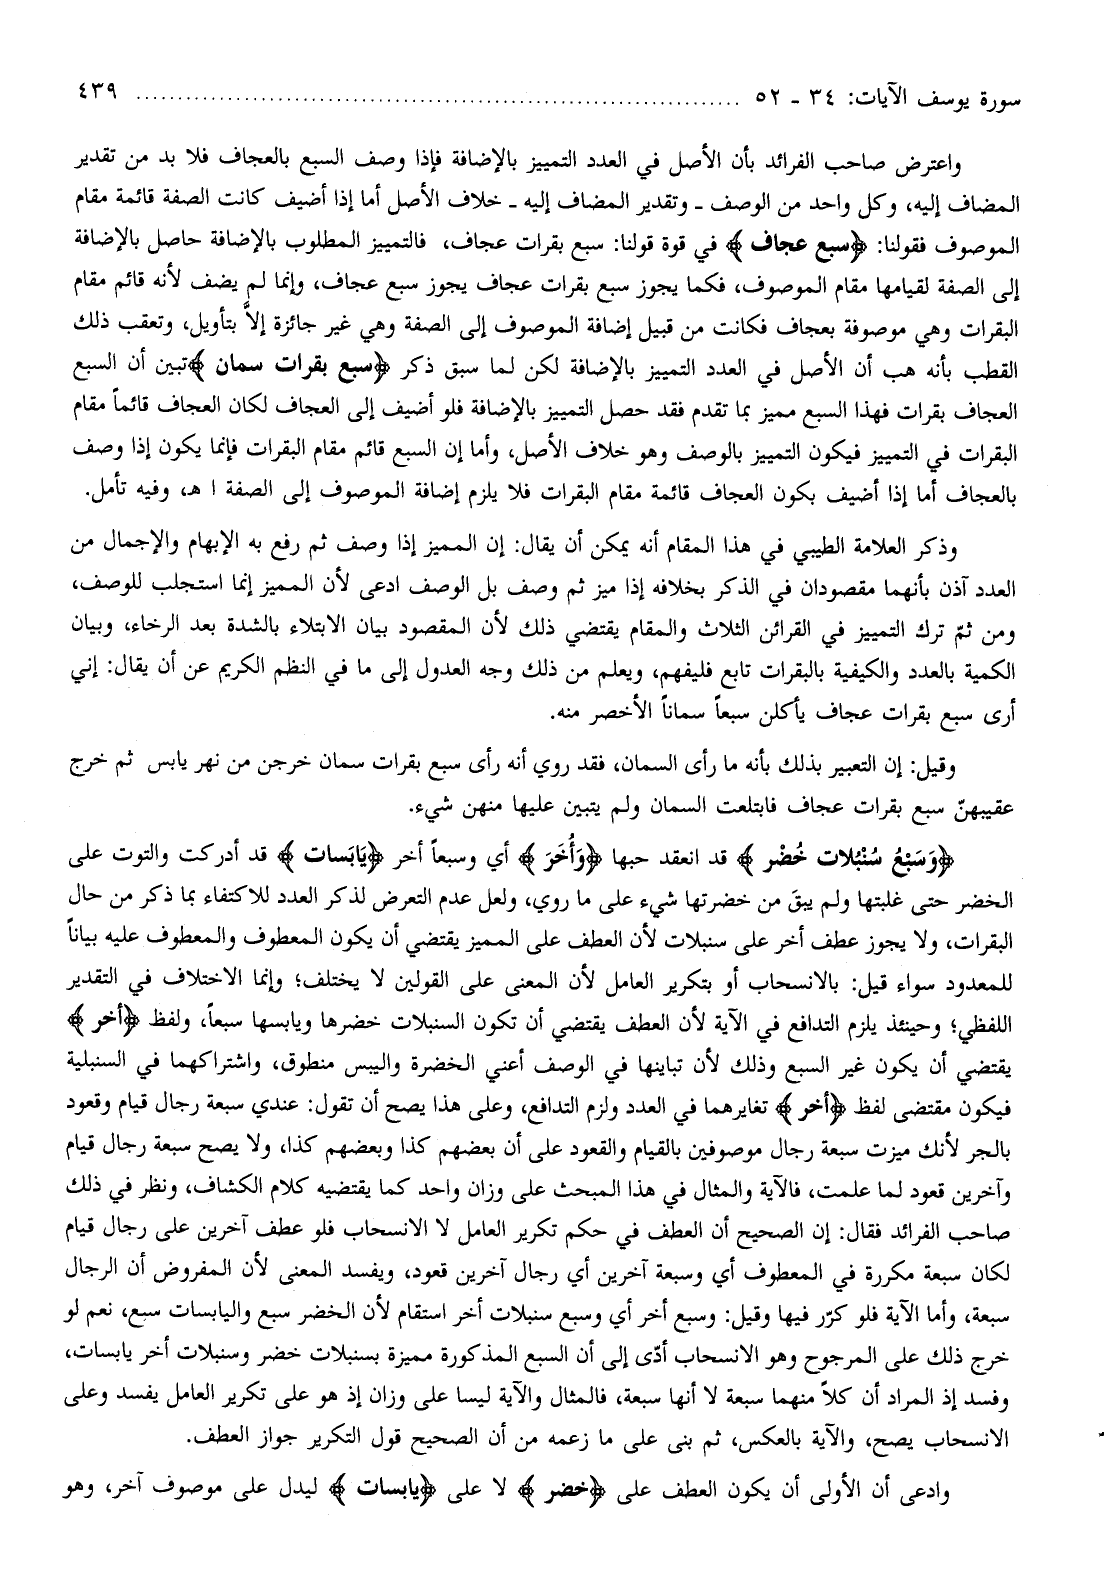 سورة يوسف الآيات: ٣٤ - ٥٢ ................................................ ٤٣٩
واعترض صاحب الفرائد بأن الأصل في العدد التمييز بالإضافة فإذا وصف السبع بالعجاف فلا بد من تقدير
المضاف إليه، وكل واحد من الوصف ـ وتقدير المضاف إليه ـ خلاف الأصل أما إذا أضيف كانت الصفة قائمة مقام
الموصوف فقولنا: ﴿سبع عجاف﴾ في قوة قولنا: سبع بقرات عجاف، فالتمييز المطلوب بالإضافة حاصل بالإضافة
إلى الصفة لقيامها مقام الموصوف، فكما يجوز سبع بقرات عجاف يجوز سبع عجاف، وإنما لم يضف لأنه قائم مقام
البقرات وهي موصوفة بعجاف فكانت من قبيل إضافة الموصوف إلى الصفة وهي غير جائزة إلاَّ بتأويل، وتعقب ذلك
القطب بأنه هب أن الأصل في العدد التمييز بالإضافة لكن لما سبق ذكر ﴿سبع بقرات سمان﴾تبين أن السبع
العجاف بقرات فهذا السبع مميز بما تقدم فقد حصل التمييز بالإضافة فلو أضيف إلى العجاف لكان العجاف قائماً مقام
البقرات في التمييز فيكون التمييز بالوصف وهو خلاف الأصل، وأما إن السبع قائم مقام البقرات فإنما يكون إذا وصف
بالعجاف أما إذا أضيف بكون العجاف قائمة مقام البقرات فلا يلزم إضافة الموصوف إلى الصفة ا هـ، وفيه تأمل.
وذكر العلامة الطيبي في هذا المقام أنه يمكن أن يقال: إن المميز إذا وصف ثم رفع به الإبهام والإجمال من
العدد آذن بأنهما مقصودان في الذكر بخلافه إذا ميز ثم وصف بل الوصف ادعى لأن المميز إنما استجلب للوصف،
ومن ثمّ ترك التمييز في القرائن الثلاث والمقام يقتضي ذلك لأن المقصود بيان الابتلاء بالشدة بعد الرخاء، وبيان
الكمية بالعدد والكيفية بالبقرات تابع فليفهم، ويعلم من ذلك وجه العدول إلى ما في النظم الكريم عن أن يقال: إني
أرى سبع بقرات عجاف يأكلن سبعاً سماناً الأخصر منه.
وقيل: إن التعبير بذلك بأنه ما رأى السمان، فقد روي أنه رأى سبع بقرات سمان خرجن من نهر يابس ثم خرج
عقيبهنّ سبع بقرات عجاف فابتلعت السمان ولم يتبين عليها منهن شيء.
﴿وَسَبْعُ سُنْبُلات خُضْر﴾ قد انعقد حبها ﴿وَأُخَرَ﴾ أي وسبعاً أخر ﴿يَابَسات﴾ قد أدركت والتوت على
الخضر حتى غلبتها ولم يبقَ من خضرتها شيء على ما روي، ولعل عدم التعرض لذكر العدد للاكتفاء بما ذكر من حال
البقرات، ولا يجوز عطف أخر على سنبلات لأن العطف على المميز يقتضي أن يكون المعطوف والمعطوف عليه بياناً
للمعدود سواء قيل: بالانسحاب أو بتكرير العامل لأن المعنى على القولين لا يختلف؛ وإنما الاختلاف في التقدير
اللفظي؛ وحينئذ يلزم التدافع في الآية لأن العطف يقتضي أن تكون السنبلات خضرها ويابسها سبعاً، ولفظ ﴿أخر﴾
يقتضي أن يكون غير السبع وذلك لأن تباينها في الوصف أعني الخضرة واليبس منطوق، واشتراكهما في السنبلية
فيكون مقتضى لفظ ﴿أخر﴾ تغايرهما في العدد ولزم التدافع، وعلى هذا يصح أن تقول: عندي سبعة رجال قيام وقعود
بالجر لأنك ميزت سبعة رجال موصوفين بالقيام والقعود على أن بعضهم كذا وبعضهم كذا، ولا يصح سبعة رجال قيام
وآخرين قعود لما علمت، فالآية والمثال في هذا المبحث على وزان واحد كما يقتضيه كلام الكشاف، ونظر في ذلك
صاحب الفرائد فقال: إن الصحيح أن العطف في حكم تكرير العامل لا الانسحاب فلو عطف آخرين على رجال قيام
لكان سبعة مكررة في المعطوف أي وسبعة آخرين أي رجال آخرين قعود، ويفسد المعنى لأن المفروض أن الرجال
سبعة، وأما الآية فلو كرّر فيها وقيل: وسبع أخر أي وسبع سنبلات أخر استقام لأن الخضر سبع واليابسات سبع، نعم لو
خرج ذلك على المرجوح وهو الانسحاب أدّى إلى أن السبع المذكورة مميزة بسنبلات خضر وسنبلات أخر يابسات،
وفسد إذ المراد أن كلاً منهما سبعة لا أنها سبعة، فالمثال والآية ليسا على وزان إذ هو على تكرير العامل يفسد وعلى
الانسحاب يصح، والآية بالعكس، ثم بنى على ما زعمه من أن الصحيح قول التكرير جواز العطف.
وادعى أن الأولى أن يكون العطف على ﴿خضر﴾ لا على ﴿يابسات﴾ ليدل على موصوف آخر، وهو